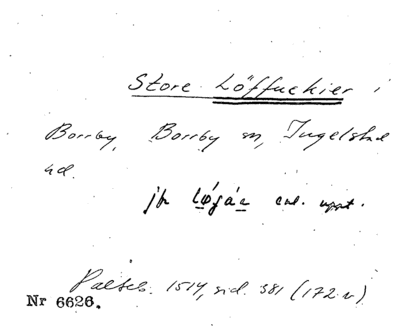 Store Löffuekier i
Borrby, Borrby sn, Ingelstad
hd.
jfr enl. uppt.
Palteb. 1514, sid. 381 (172 v)
Nr 6626.